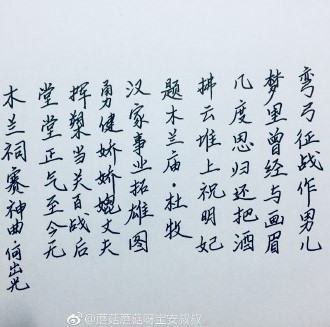 弯弓征战作男儿
梦里曾经与画眉
几度思归还把酒
拂云堆上祝明妃
题木兰庙·杜牧
汉家事业拓雄图
勇健娇娇媲丈夫
挥槊当关百战后
堂堂正气至今无
木兰祠赛神曲 何出光
@蘑菇蘑菇呀宝安叔叔